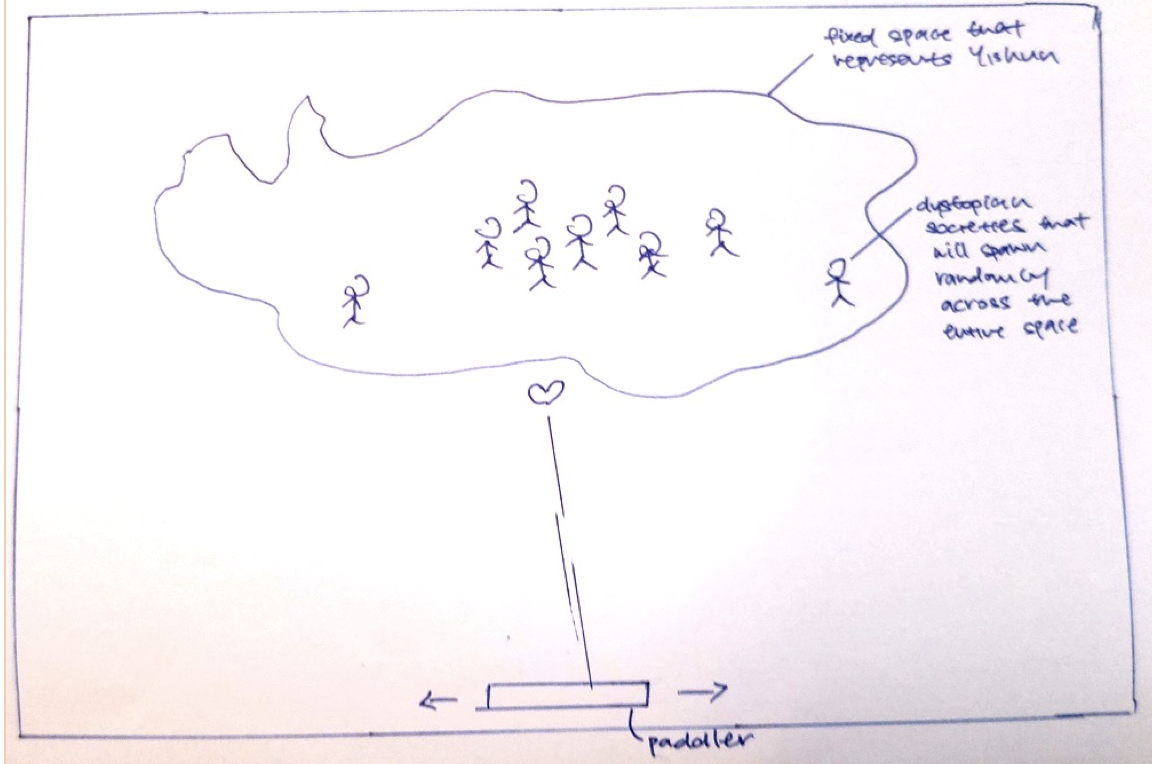 fixed space that
represents Yishun
dystopian
societies that
will spawn
randomly
across the
entire space
paddler